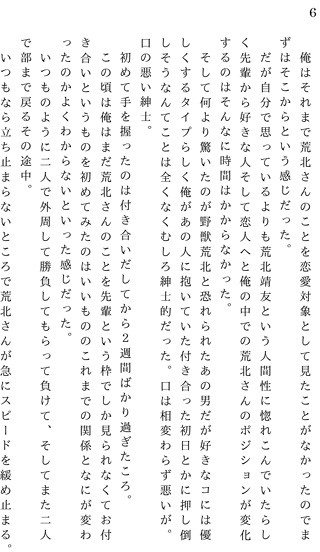 6
俺はそれまで荒北さんのことを恋愛対象として見たことがなかったのでま
ずはそこからという感じだった。
だが自分で思っているよりも荒北靖友という人間性に惚れこんでいたらし
く先輩から好きな人そして恋人へと俺の中での荒北さんのポジションが変化
するのはそんなに時間はかからなかった。
そして何より驚いたのが野獣荒北と恐れられたあの男だが好きなコには優
しくするタイプらしく俺があの人に抱いていた付き合った初日とかに押し倒
しそうなんてことは全くなくむしろ紳士的だった。口は相変わらず悪いが。
口の悪い紳士。
初めて手を握ったのは付き合いだしてから2週間ばかり過ぎたころ。
この頃は俺はまだ荒北さんのことを先輩という枠でしか見られなくてお付
き合いというものを初めてみたのはいいもののこれまでの関係となにが変わ
ったのかよくわからないといった感じだった。
いつものように二人で外周して勝負してもらって負けて、そしてまた二人
で部まで戻るその途中。
いつもなら立ち止まらないところで荒北さんが急にスピードを緩め止まる。